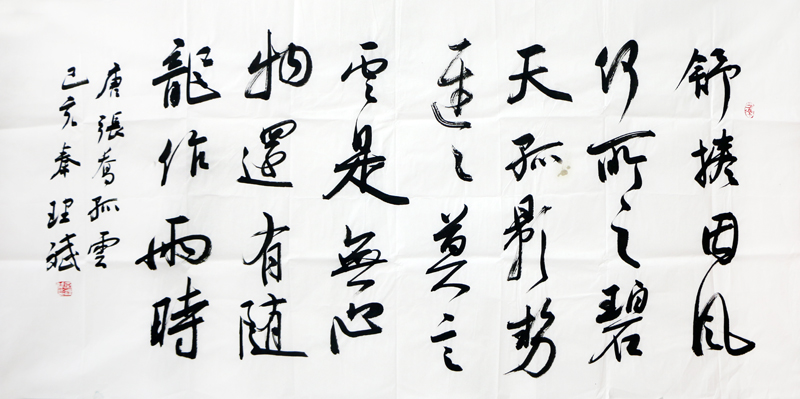 舒捲因風
何所之碧
天孤影勢
遲々莫言
長是無心
物還有随
龍作雨時
唐張喬孤雲
己亥秦理斌